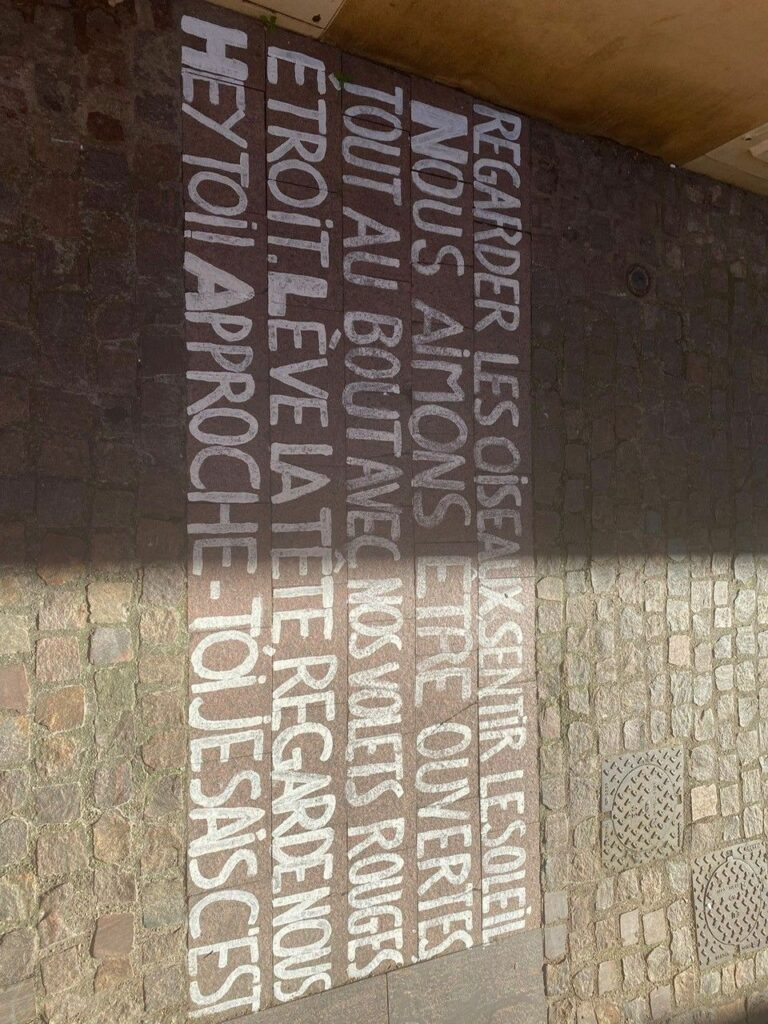 HEY TOI! APPROCHE-TOI JE SAIS C'EST
ÉTROIT. LÈVE LA TÊTE, REGARDE NOUS
TOUT AU BOUT AVEC NOS VOLETS ROUGES
NOUS AIMONS ÊTRE OUVERTES,
REGARDER LES OISEAUX SENTIR LE SOLEIL